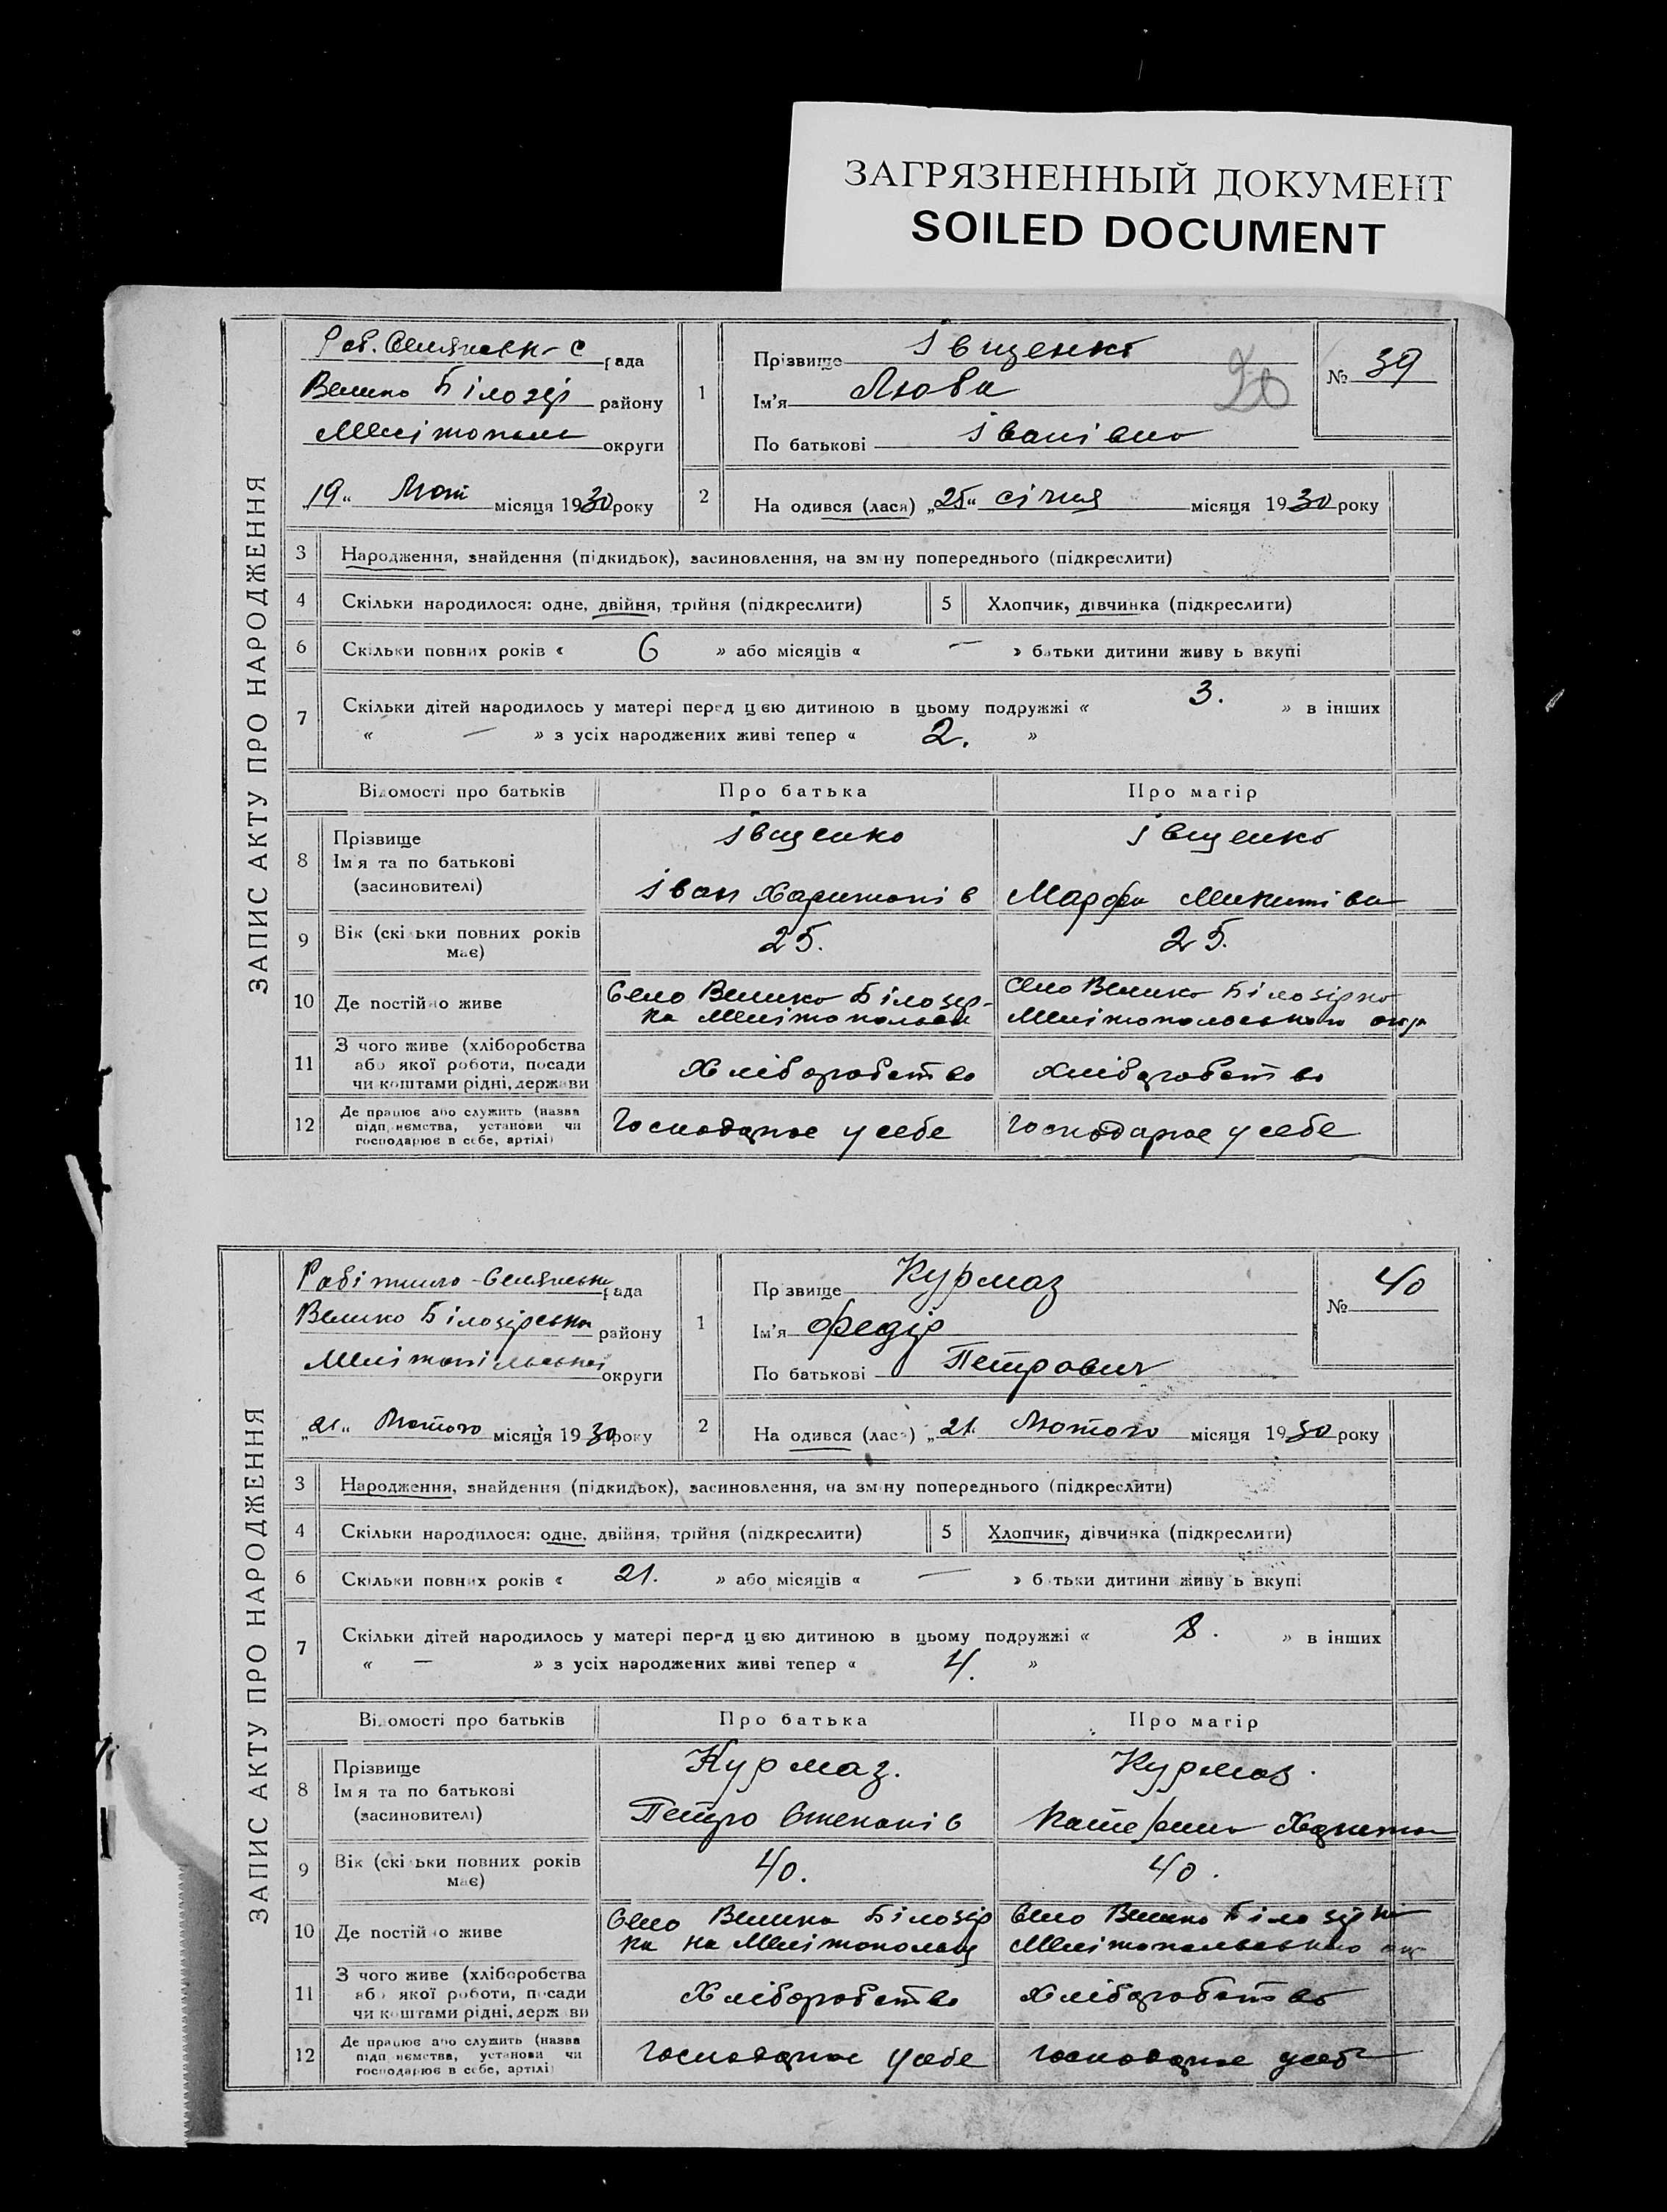 ЗАГРЯЗНЕННЫЙ ДОКУМЕНТ
SOILED DOCUMENT
ЗАПИС АКТУ ПРО НАРОДЖЕННЯ
Роб. Селянськ-с рада
Велико Білозір району
Мелітополь округи
19 " Лют місяця 1930 року
1
Прізвище Івщенко
Ім'я Люба
По батькові Іванівна
№ 39
2
На одився (лася) „25" січня місяця 1930 року
3 Народження, знайдення (підкидьок), засиновлення, на зміну попереднього (підкреслити)
4 Скільки народилося: одне, двійня, трійня (підкреслити) 5 Хлопчик, дівчинка (підкреслити)
6 Скільки повних років « 6 » або місяців « — » батьки дитини живу ь вкупі
7 Скільки дітей народилось у матері перед цією дитиною в цьому подружжі « 3. » в інших
« — » з усіх народжених живі тепер « 2. »
Відомості про батьків Про батька Про матір
8 Прізвище
Ім'я та по батькові
(засиновителі)
Івщенко
Іван Харитонів
Івщенко
Марфа Микитівна
9 Вік (скільки повних років
має)
25. 25.
10 Де постійно живе
Село Велико Білозір-
ка
Село Велико Білозірка
Мелітопольського окр
11 З чого живе (хліборобства
або якої роботи, посади
чи коштами рідні, держави
Хліборобство Хліборобство
12 Де працює або служить (назва
підприємства, установи чи
господарює в себе, артілі)
Господарює у себе Господарює у себе
ЗАПИС АКТУ ПРО НАРОДЖЕННЯ
Робітничо-Селянська рада
Велико Білозірська району
Мелітопільської округи
„21" Лютого місяця 1930 року
1
Прізвище Курмаз
Ім'я Федір
По батькові Петрович
№ 40
2
На одився (лася) „21. Лютого місяця 1930 року
3 Народження, знайдення (підкидьох), засиновлення, на зміну попереднього (підкреслити)
4 Скільки народилося: одне, двійня, трійня (підкреслити) 5 Хлопчик, дівчинка (підкреслити)
6 Скільки повних років « 21. » або місяців « — » батьки дитини живу ь вкупі
7 Скільки дітей народилось у матері перед цією дитиною в цьому подружжі « 8. » в інших
« — » з усіх народжених живі тепер « 4. »
Відомості про батьків Про батька Про матір
8 Прізвище
Ім'я та по батькові
(засиновителі)
Курмаз.
Петро Степанів
Курмаз.
Катерина
9 Вік (скільки повних років
має)
40. 40.
10 Де постійно живе
Село Велика Білозір
ка на
Село Велико Білозірка
Мелітопольського окр
11 З чого живе (хліборобства
або якої роботи, посади
чи коштами рідні, держави
Хліборобство Хліборобство
12 Де працює або служить (назва
підприємства, установи чи
господарює в себе, артілі)
Господарює у себе Господарює у себе